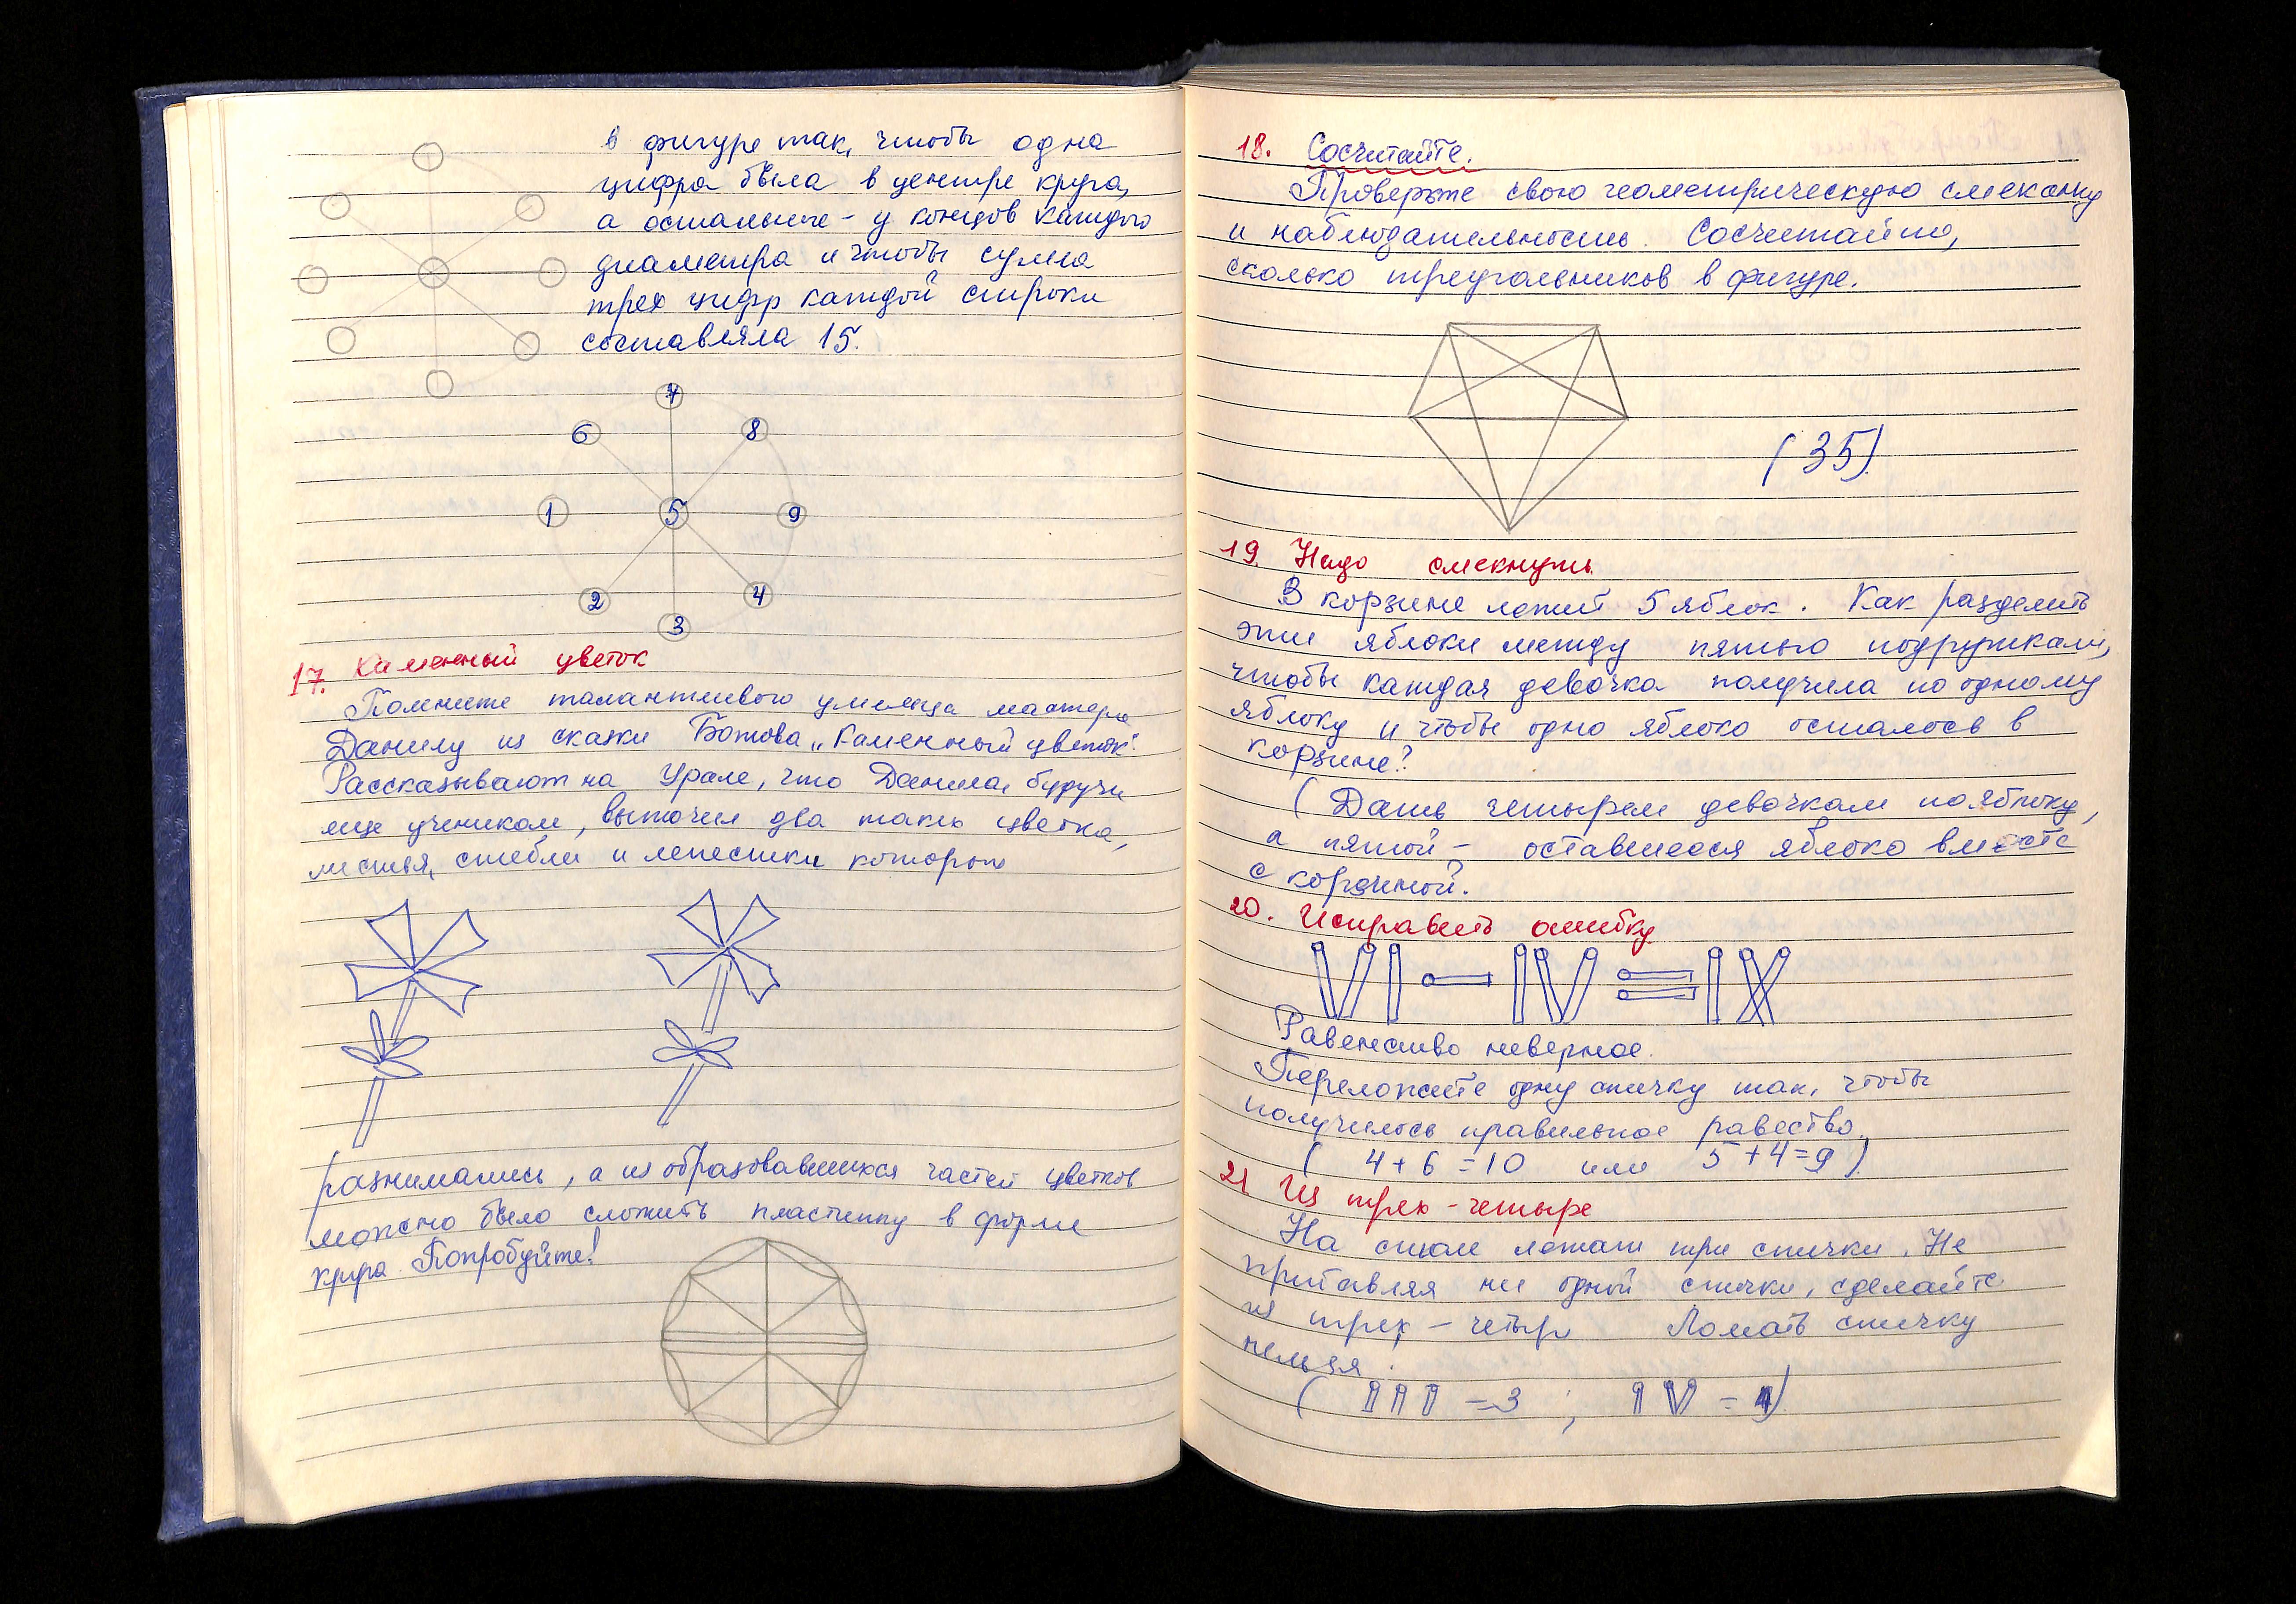 в фигуре так, чтобы одна
цифра была в центре круга,
а остальные - у концов каждого
диаметра и чтобы сумма
трех цифр каждой строки
составляла 15.
7
6 8
1 5 9
2 4
3
17. Каменный цветок
Помните талантливого умельца мастера
Данилу из сказки Бажова „Каменный цветок".
Рассказывают на Урале, что Данила, будучи
еще учеником, выточил два таких цветка,
листья, стебли и лепестки которых
разнимались, а из образовавшихся частей цветков
можно было сложить пластинку в форме
круга. Попробуйте!
18. Сосчитайте.
Проверьте свою геометрическую смекалку
и наблюдательность. Сосчитайте,
сколько треугольников в фигуре.
(35)
19. Надо смекнуть
В корзине лежит 5 яблок. Как разделить
эти яблоки между пятью подружками,
чтобы каждая девочка получила по одному
яблоку и чтобы одно яблоко осталось в
корзине?
(Дать четырем девочкам по яблоку,
а пятой - оставшееся яблоко вместе
с корзиной.
20. Исправить ошибку
VI - IV = IX
Равенство неверное.
Переложите одну спичку так, чтобы
получилось правильное равество.
( 4 + 6 = 10 или 5 + 4 = 9 )
21 Из трех - четыре
На столе лежат три спички. Не
прибавляя ни одной спички, сделайте
из трех - четыре Ломать спичку
нельзя.
( III = 3 ; IV = 4)